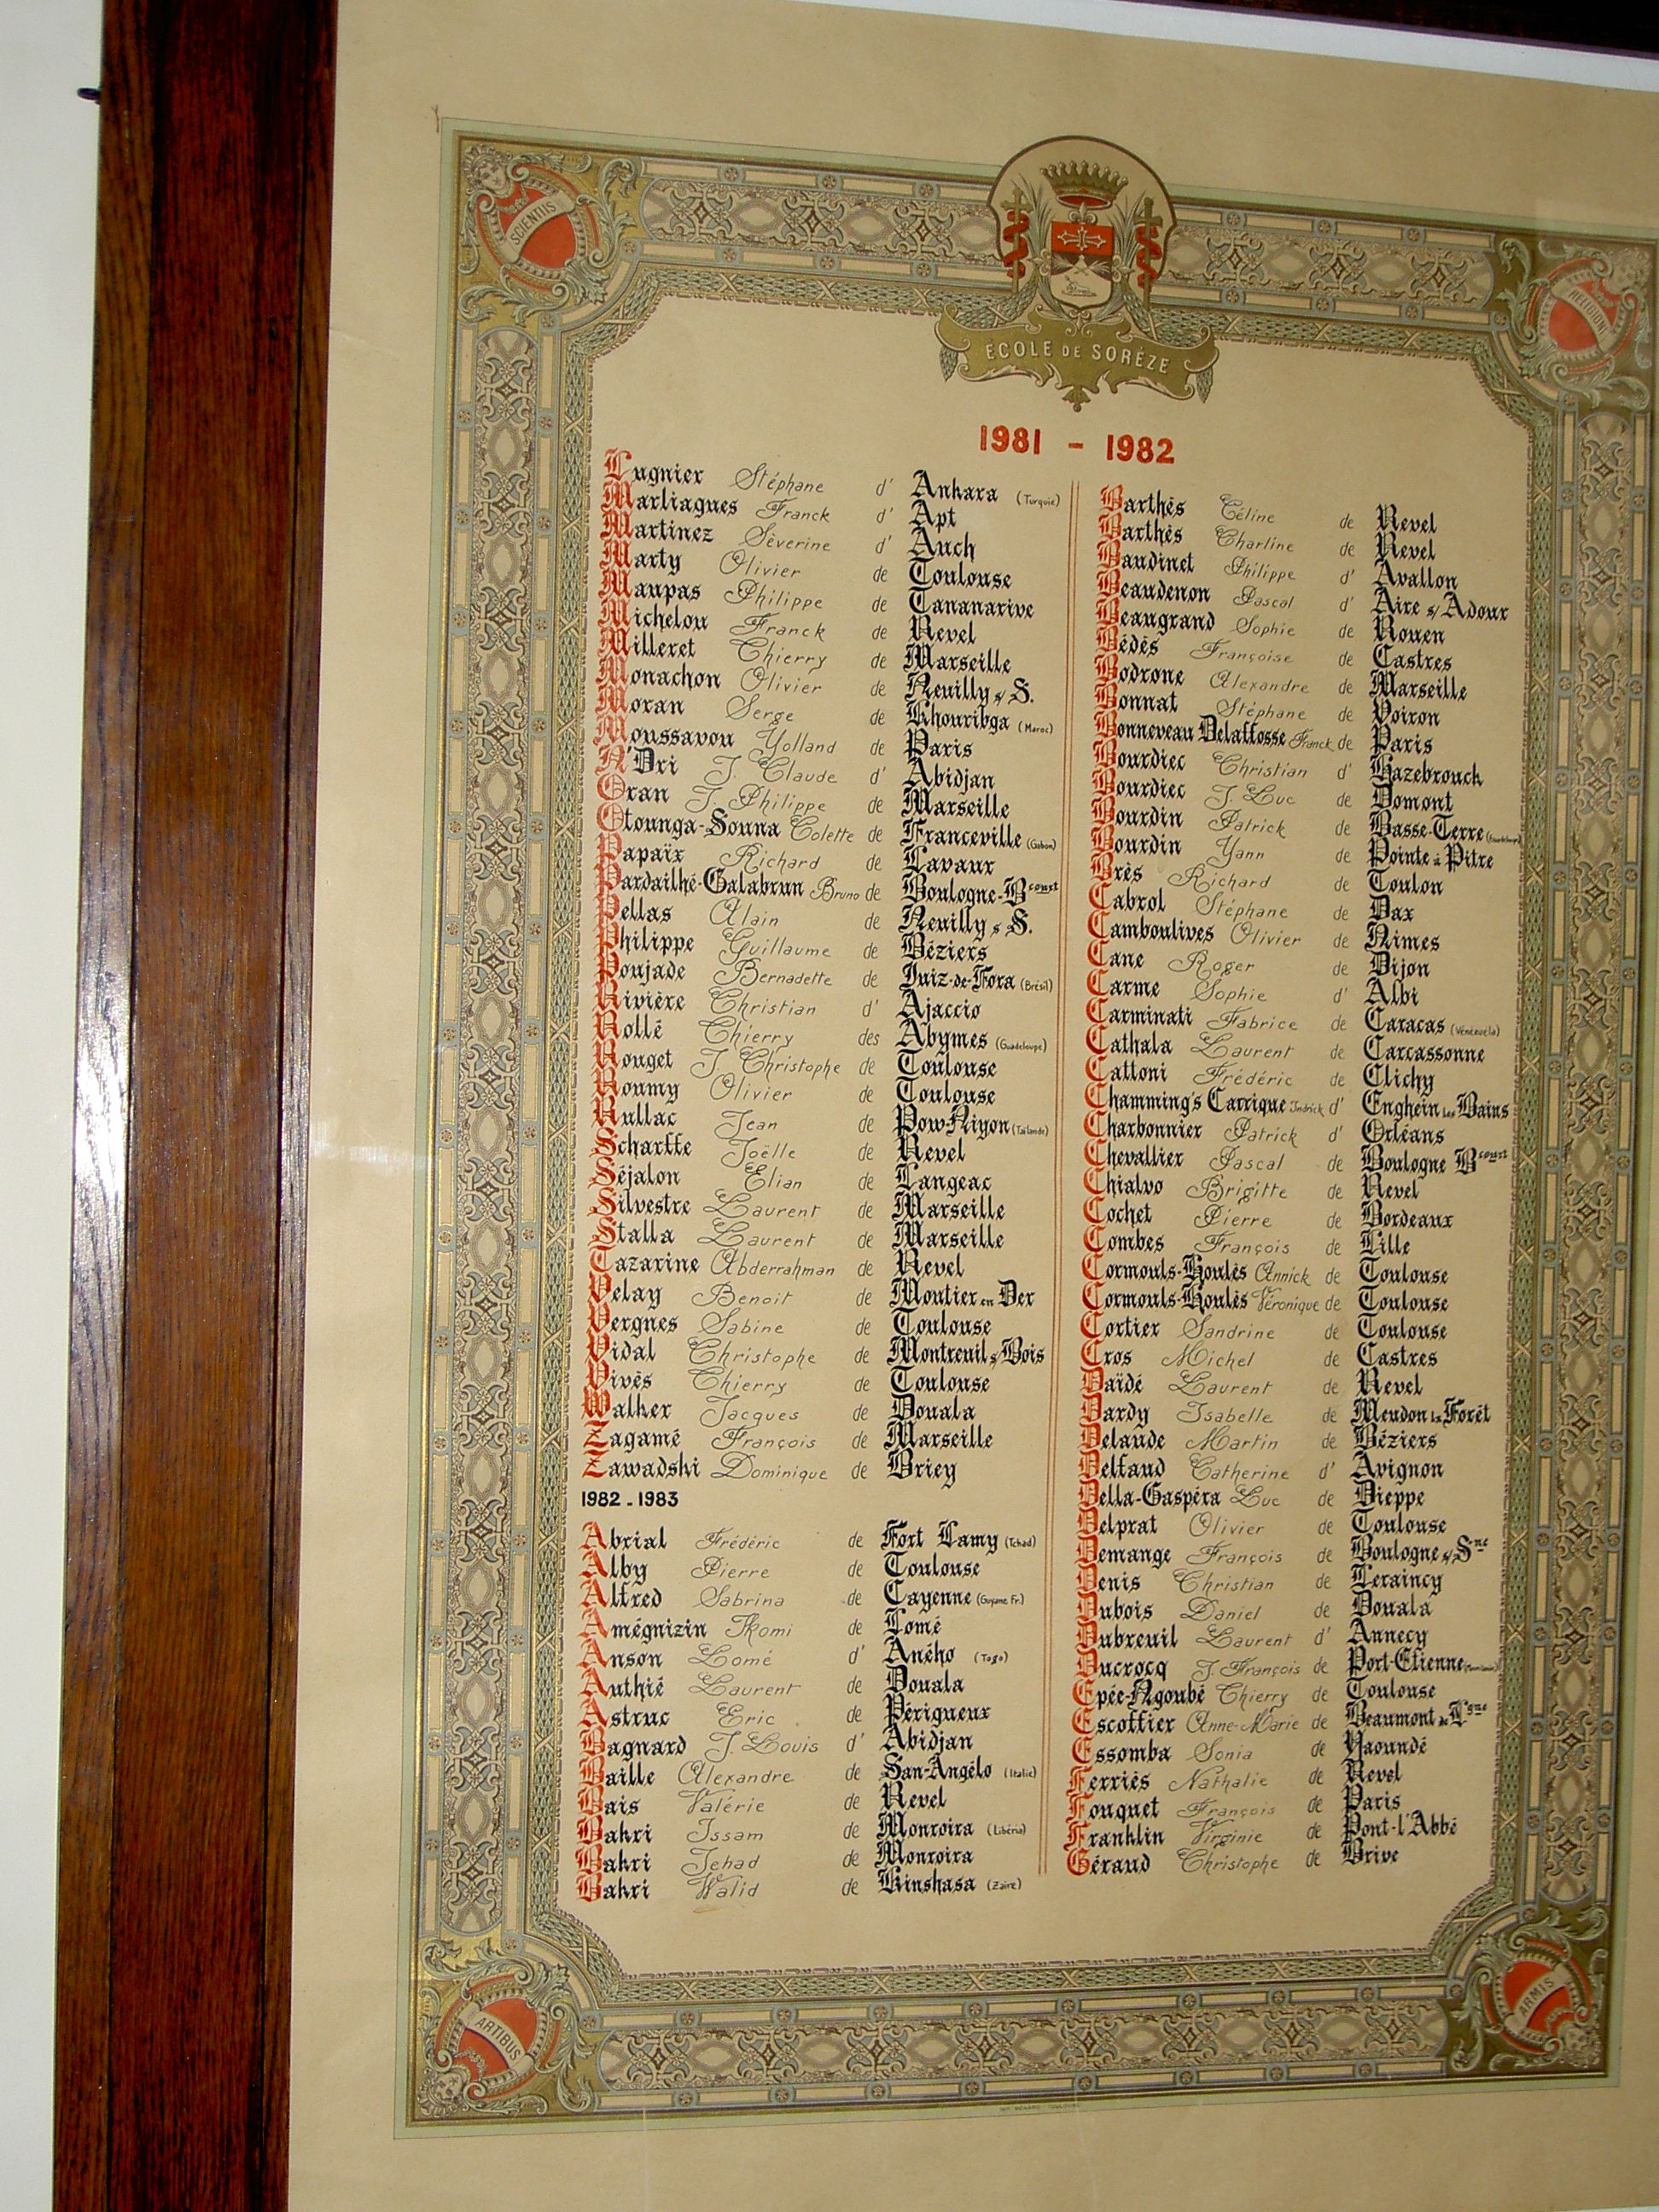 SCIENTIIS
RELIGIONI
ÉCOLE DE SORÈZE
1981 - 1982
Lugnier Stéphane d' Ankara (Turquie)
Marliagues Franck d' Apt
Martinez Séverine d' Auch
Marty Olivier de Toulouse
Maupas Philippe de Tananarive
Michelou Franck de Revel
Milleret Thierry de Marseille
Monachon Olivier de Neuilly s/ S.
Moran Serge de Khouribga (Maroc)
Moussavou Yolland de Paris
N'Dri J. Claude d' Abidjan
Oran J. Philippe de Marseille
Otounga-Souna Colette de Franceville (Gabon)
Papaïx Richard de Lavaur
Pardailhé-Galabrun Bruno de Boulogne-Bcourt
Pellas Alain de Neuilly s S.
Philippe Guillaume de Béziers
Poujade Bernadette de Juiz-de-Fora (Brésil)
Rivière Christian d' Ajaccio
Rollé Thierry des Abymes (Guadeloupe)
Rouget J. Christophe de Toulouse
Roumy Olivier de Toulouse
Rullac Jean de Pow Niyon (Taïlande)
Scharffe Joëlle de Revel
Séjalon Elian de Langeac
Silvestre Laurent de Marseille
Stalla Laurent de Marseille
Tazarine Abderrahman de Revel
Velay Benoit de Moutier en Der
Vergnes Sabine de Toulouse
Vidal Christophe de Montreuil s/ Bois
Vivès Thierry de Toulouse
Walker Jacques de Douala
Zagamé François de Marseille
Zawadski Dominique de Briey
1982 - 1983
Abrial Frédéric de Fort Lamy (Tchad)
Alby Pierre de Toulouse
Alfred Sabrina de Cayenne (Guyane Fr.)
Amégnizin Ikomi de Lomé
Anson Lomé d' Aného (Togo)
Authié Laurent de Douala
Astruc Eric de Périgueux
Bagnard J. Louis d' Abidjan
Baille Alexandre de San-Angélo (Italie)
Bais Valérie de Revel
Bakri Issam de Monroira (Libéria)
Bakri Jehad de Monroira
Bakri Walid de Kinshasa (Zaïre)
Barthés Céline de Revel
Barthès Charline de Revel
Baudinet Philippe d' Avallon
Beaudenon Pascal d' Aire s/ Adour
Beaugrand Sophie de Rouen
Bédès Françoise de Castres
Bodrone Alexandre de Marseille
Bonnat Stéphane de Voiron
Bonneveau Delaffosse Franck de Paris
Bourdiec Christian d' Hazebrouck
Bourdiec J. Luc de Domont
Bourdin Patrick de Basse-Terre (Guadeloupe)
Bourdin Yann de Pointe à Pitre
Brès Richard de Toulon
Cabrol Stéphane de Dax
Camboulives Olivier de Nimes
Cane Roger de Dijon
Carme Sophie d' Albi
Carminati Fabrice de Caracas (Vénézuela)
Cathala Laurent de Carcassonne
Cattoni Frédéric de Clichy
Chamming's Carrique d' Enghein les Bains
Charbonnier Patrick d' Orléans
Chevallier Pascal de Boulogne Bcourt
Chialvo Brigitte de Revel
Cochet Pierre de Bordeaux
Combes François de Lille
Cormouls-Houlès Annick de Toulouse
Cormouls-Houlès Véronique de Toulouse
Cortier Sandrine de Toulouse
Cros Michel de Castres
Daïdé Laurent de Revel
Dardy Isabelle de Meudon la Forêt
Delaude Martin de Béziers
Delfaud Catherine d' Avignon
Della-Gaspéra Luc de Dieppe
Delprat Olivier de Toulouse
Demange François de Boulogne s/ Sne
Denis Christian de Leraincy
Dubois Daniel de Douala
Dubreuil Laurent d' Annecy
Ducrocq J. François de Port-Etienne
Epée-Ngoubé Thierry de Toulouse
Escoffier Anne-Marie de Beaumont de Lgne
Essomba Sonia de Yaoundé
Ferriés Nathalie de Revel
Fouquet François de Paris
Franklin Virginie de Pont-l'Abbé
Géraud Christophe de Brive
ARTIBUS
ARMIS